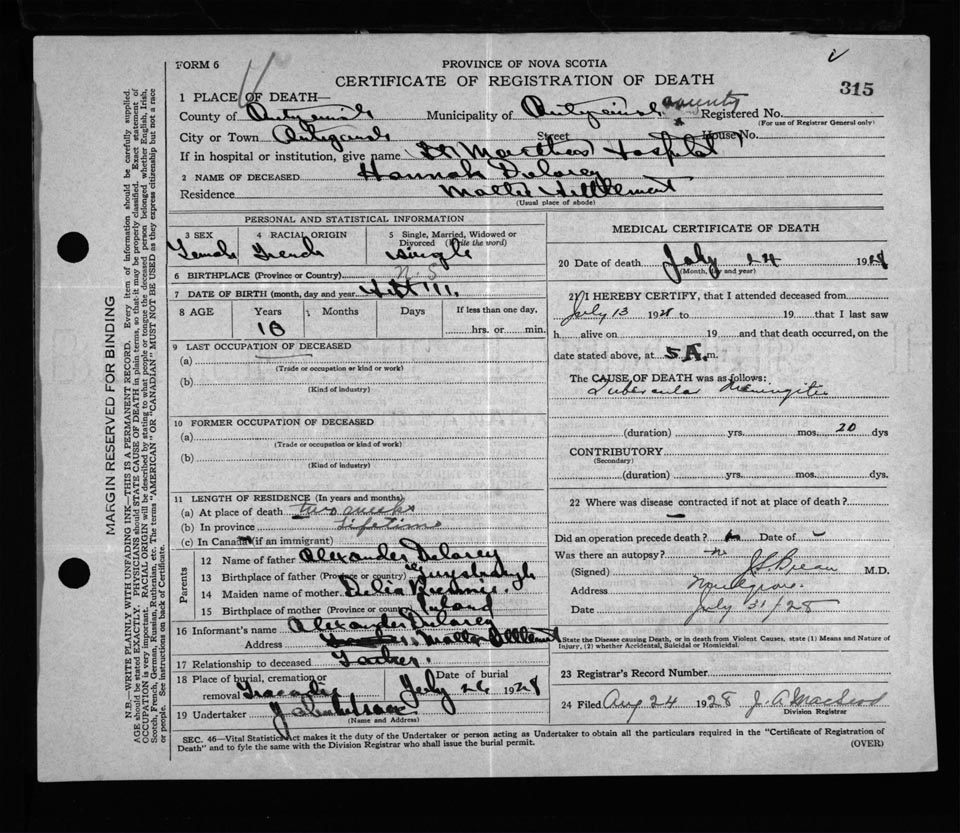 FORM 6
PROVINCE OF NOVA SCOTIA
CERTIFICATE OF REGISTRATION OF DEATH
315
1 PLACE OF DEATH—
County of Antigonish Municipality of Antigonish County Registered No.
(For use of Registrar General only)
City or Town Antigonish Street House No.
If in hospital or institution, give name St Marthas Hospital
2 NAME OF DECEASED Hannah Delorey
Residence Settlement
(Usual place of abode)
PERSONAL AND STATISTICAL INFORMATION
3 SEX 4 RACIAL ORIGIN 5 Single, Married, Widowed or Divorced (Write the word)
Female French Single
6 BIRTHPLACE (Province or Country) N S
7 DATE OF BIRTH (month, day and year)
8 AGE Years Months Days If less than one day,
18 hrs. or min.
9 LAST OCCUPATION OF DECEASED
(a)
(Trade or occupation or kind of work)
(b)
(Kind of industry)
10 FORMER OCCUPATION OF DECEASED
(a)
(Trade or occupation or kind of work)
(b)
(Kind of industry)
11 LENGTH OF RESIDENCE (In years and months)
(a) At place of death two weeks
(b) In province Lifetime
(c) In Canada (if an immigrant)
Parents
12 Name of father Alexander Delorey
13 Birthplace of father (Province or country)
14 Maiden name of mother Delia
15 Birthplace of mother (Province or country)
16 Informant's name Alexander Delorey
Address Settlement
17 Relationship to deceased Father.
18 Place of burial, cremation or removal Tracadie Date of burial July 26 1928
19 Undertaker
(Name and Address)
MEDICAL CERTIFICATE OF DEATH
20 Date of death July 24 1928
(Month, day and year)
21 I HEREBY CERTIFY, that I attended deceased from
July 13 1928 to 19 that I last saw
h alive on 19 and that death occurred, on the
date stated above, at 5 A. m.
The CAUSE OF DEATH was as follows:
Tubercular Meningitis
(duration) yrs. mos. 20 dys
CONTRIBUTORY
(Secondary)
(duration) yrs. mos. dys.
22 Where was disease contracted if not at place of death?
Did an operation precede death? Date of
Was there an autopsy? no
(Signed) M.D.
Address
Date July 31/28
State the Disease causing Death, or in death from Violent Causes, state (1) Means and Nature of
Injury, (2) whether Accidental, Suicidal or Homicidal.
23 Registrar's Record Number
24 Filed Aug 24 1928 J. A.
Division Registrar
SEC. 46—Vital Statistics Act makes it the duty of the Undertaker or person acting as Undertaker to obtain all the particulars required in the "Certificate of Registration of
Death" and to fyle the same with the Division Registrar who shall issue the burial permit.
(OVER)
MARGIN RESERVED FOR BINDING
N.B.—WRITE PLAINLY WITH UNFADING INK—THIS IS A PERMANENT RECORD. Every item of information should be carefully supplied.
AGE should be stated EXACTLY. PHYSICIANS should STATE CAUSE OF DEATH in plain terms, so that it may be properly classified. Exact statement of
OCCUPATION is very important. RACIAL ORIGIN will be described by stating to what people or tongue the deceased person belonged whether English, Irish,
Scotch, French, German, Russian, Ruthenian, etc. The terms "AMERICAN" OR "CANADIAN" MUST NOT BE USED as they express citizenship but not a race
or people. See instructions on back of Certificate.